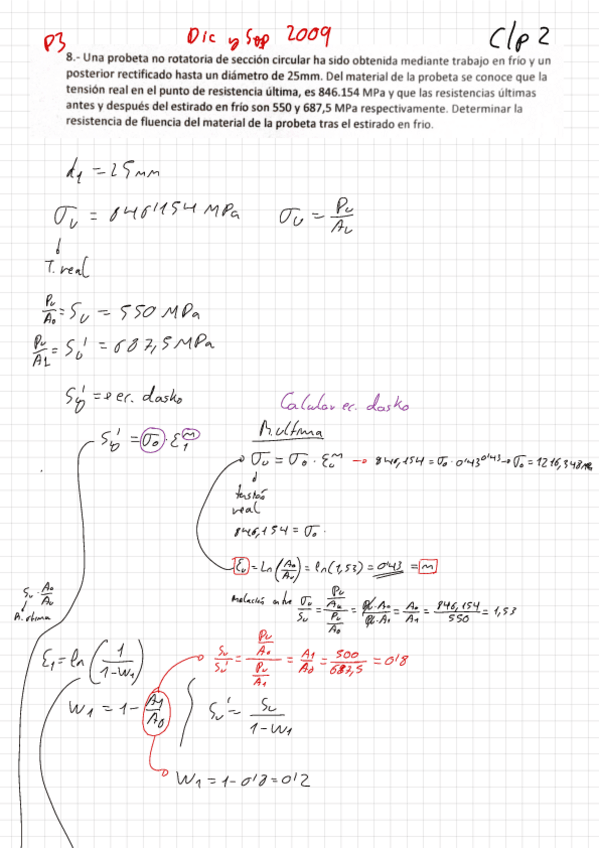 P3 Dic y Sep 2009 C/p 2
8.- Una probeta no rotatoria de sección circular ha sido obtenida mediante trabajo en frío y un
posterior rectificado hasta un diámetro de 25mm. Del material de la probeta se conoce que la
tensión real en el punto de resistencia última, es 846.154 MPa y que las resistencias últimas
antes y después del estirado en frío son 550 y 687,5 MPa respectivamente. Determinar la
resistencia de fluencia del material de la probeta tras el estirado en frio.
d1 = 25mm
σu = 846'154 MPa σu = Pu/Au
T. real
Pu/A0 = Su = 550 MPa
Pu/A1 = Su' = 687,5 MPa
Sy' => ec. dasko
Calcular ec. dasko
R. ultima
Sy' = σ0 · ε1^m
σu = σ0 · εu^m → 846,154 = σ0 · 0'43^0'43 → σ0 = 1216,348
tensión
real
846,154 = σ0 ·
εu = ln(A0/Au) = ln(1,53) = 0'43 = m
Su · A0/Au
R. ultima
Relación entre σu/Su = (Pu/Au)/(Pu/A0) = Pu·A0/Pu·A0 = A0/A1 = 846,154/550 = 1,53
ε1 = ln(1/(1-W1))
Su/Su' = (Pu/A0)/(Pu/A1) = A1/A0 = 500/687,5 = 0'8
W1 = 1 - A1/A0
Su' = Su/(1-W1)
W1 = 1 - 0'8 = 0'2